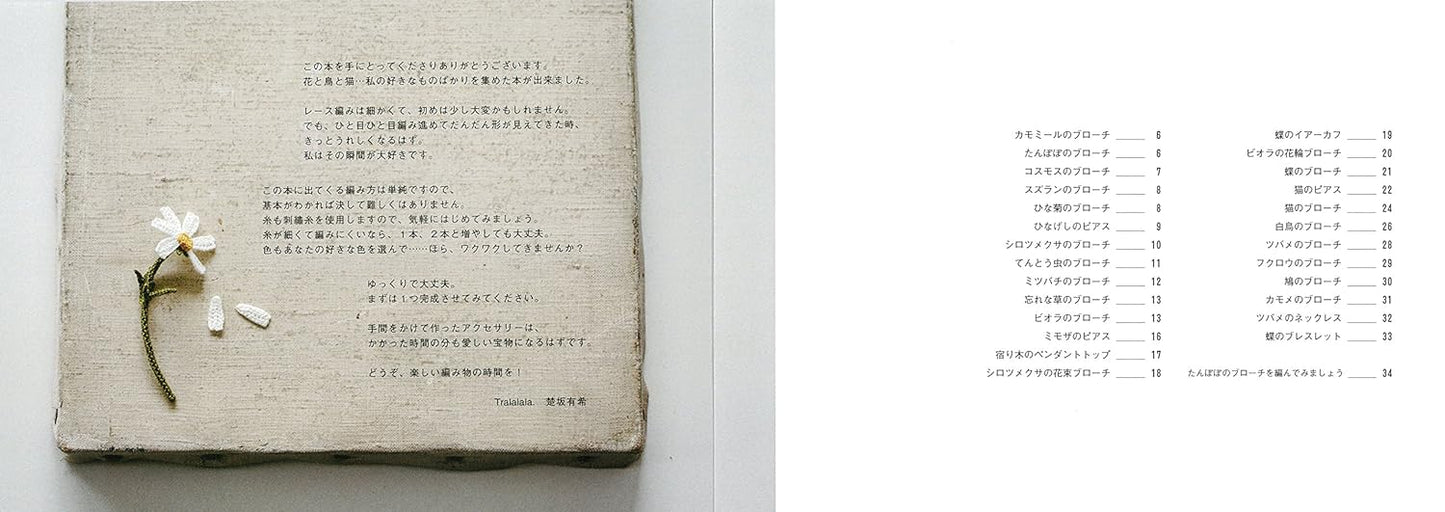 この本を手にとってくださりありがとうございます。
花と鳥と猫…私の好きなものばかりを集めた本が出来ました。
レース編みは細かくて、初めは少し大変かもしれません。
でも、ひと目ひと目編み進めてだんだん形が見えてきた時、
きっとうれしくなるはず。
私はその瞬間が大好きです。
この本に出てくる編み方は単純ですので、
基本がわかれば決して難しくはありません。
糸も刺繡糸を使用しますので、気軽にはじめてみましょう。
糸が細くて編みにくいなら、1本、2本と増やしても大丈夫。
色もあなたの好きな色を選んで……ほら、ワクワクしてきませんか？
ゆっくりで大丈夫。
まずは1つ完成させてみてください。
手間をかけて作ったアクセサリーは、
かかった時間の分も愛しい宝物になるはずです。
どうぞ、楽しい編み物の時間を！
Tralalala. 楚坂有希
カモミールのブローチ 6
たんぽぽのブローチ 6
コスモスのブローチ 7
スズランのブローチ 8
ひな菊のブローチ 8
ひなげしのピアス 9
シロツメクサのブローチ 10
てんとう虫のブローチ 11
ミツバチのブローチ 12
忘れな草のブローチ 13
ビオラのブローチ 13
ミモザのピアス 16
宿り木のペンダントトップ 17
シロツメクサの花束ブローチ 18
蝶のイアーカフ 19
ビオラの花輪ブローチ 20
蝶のブローチ 21
猫のピアス 22
猫のブローチ 24
白鳥のブローチ 26
ツバメのブローチ 28
フクロウのブローチ 29
鳩のブローチ 30
カモメのブローチ 31
ツバメのネックレス 32
蝶のブレスレット 33
たんぽぽのブローチを編んでみましょう 34